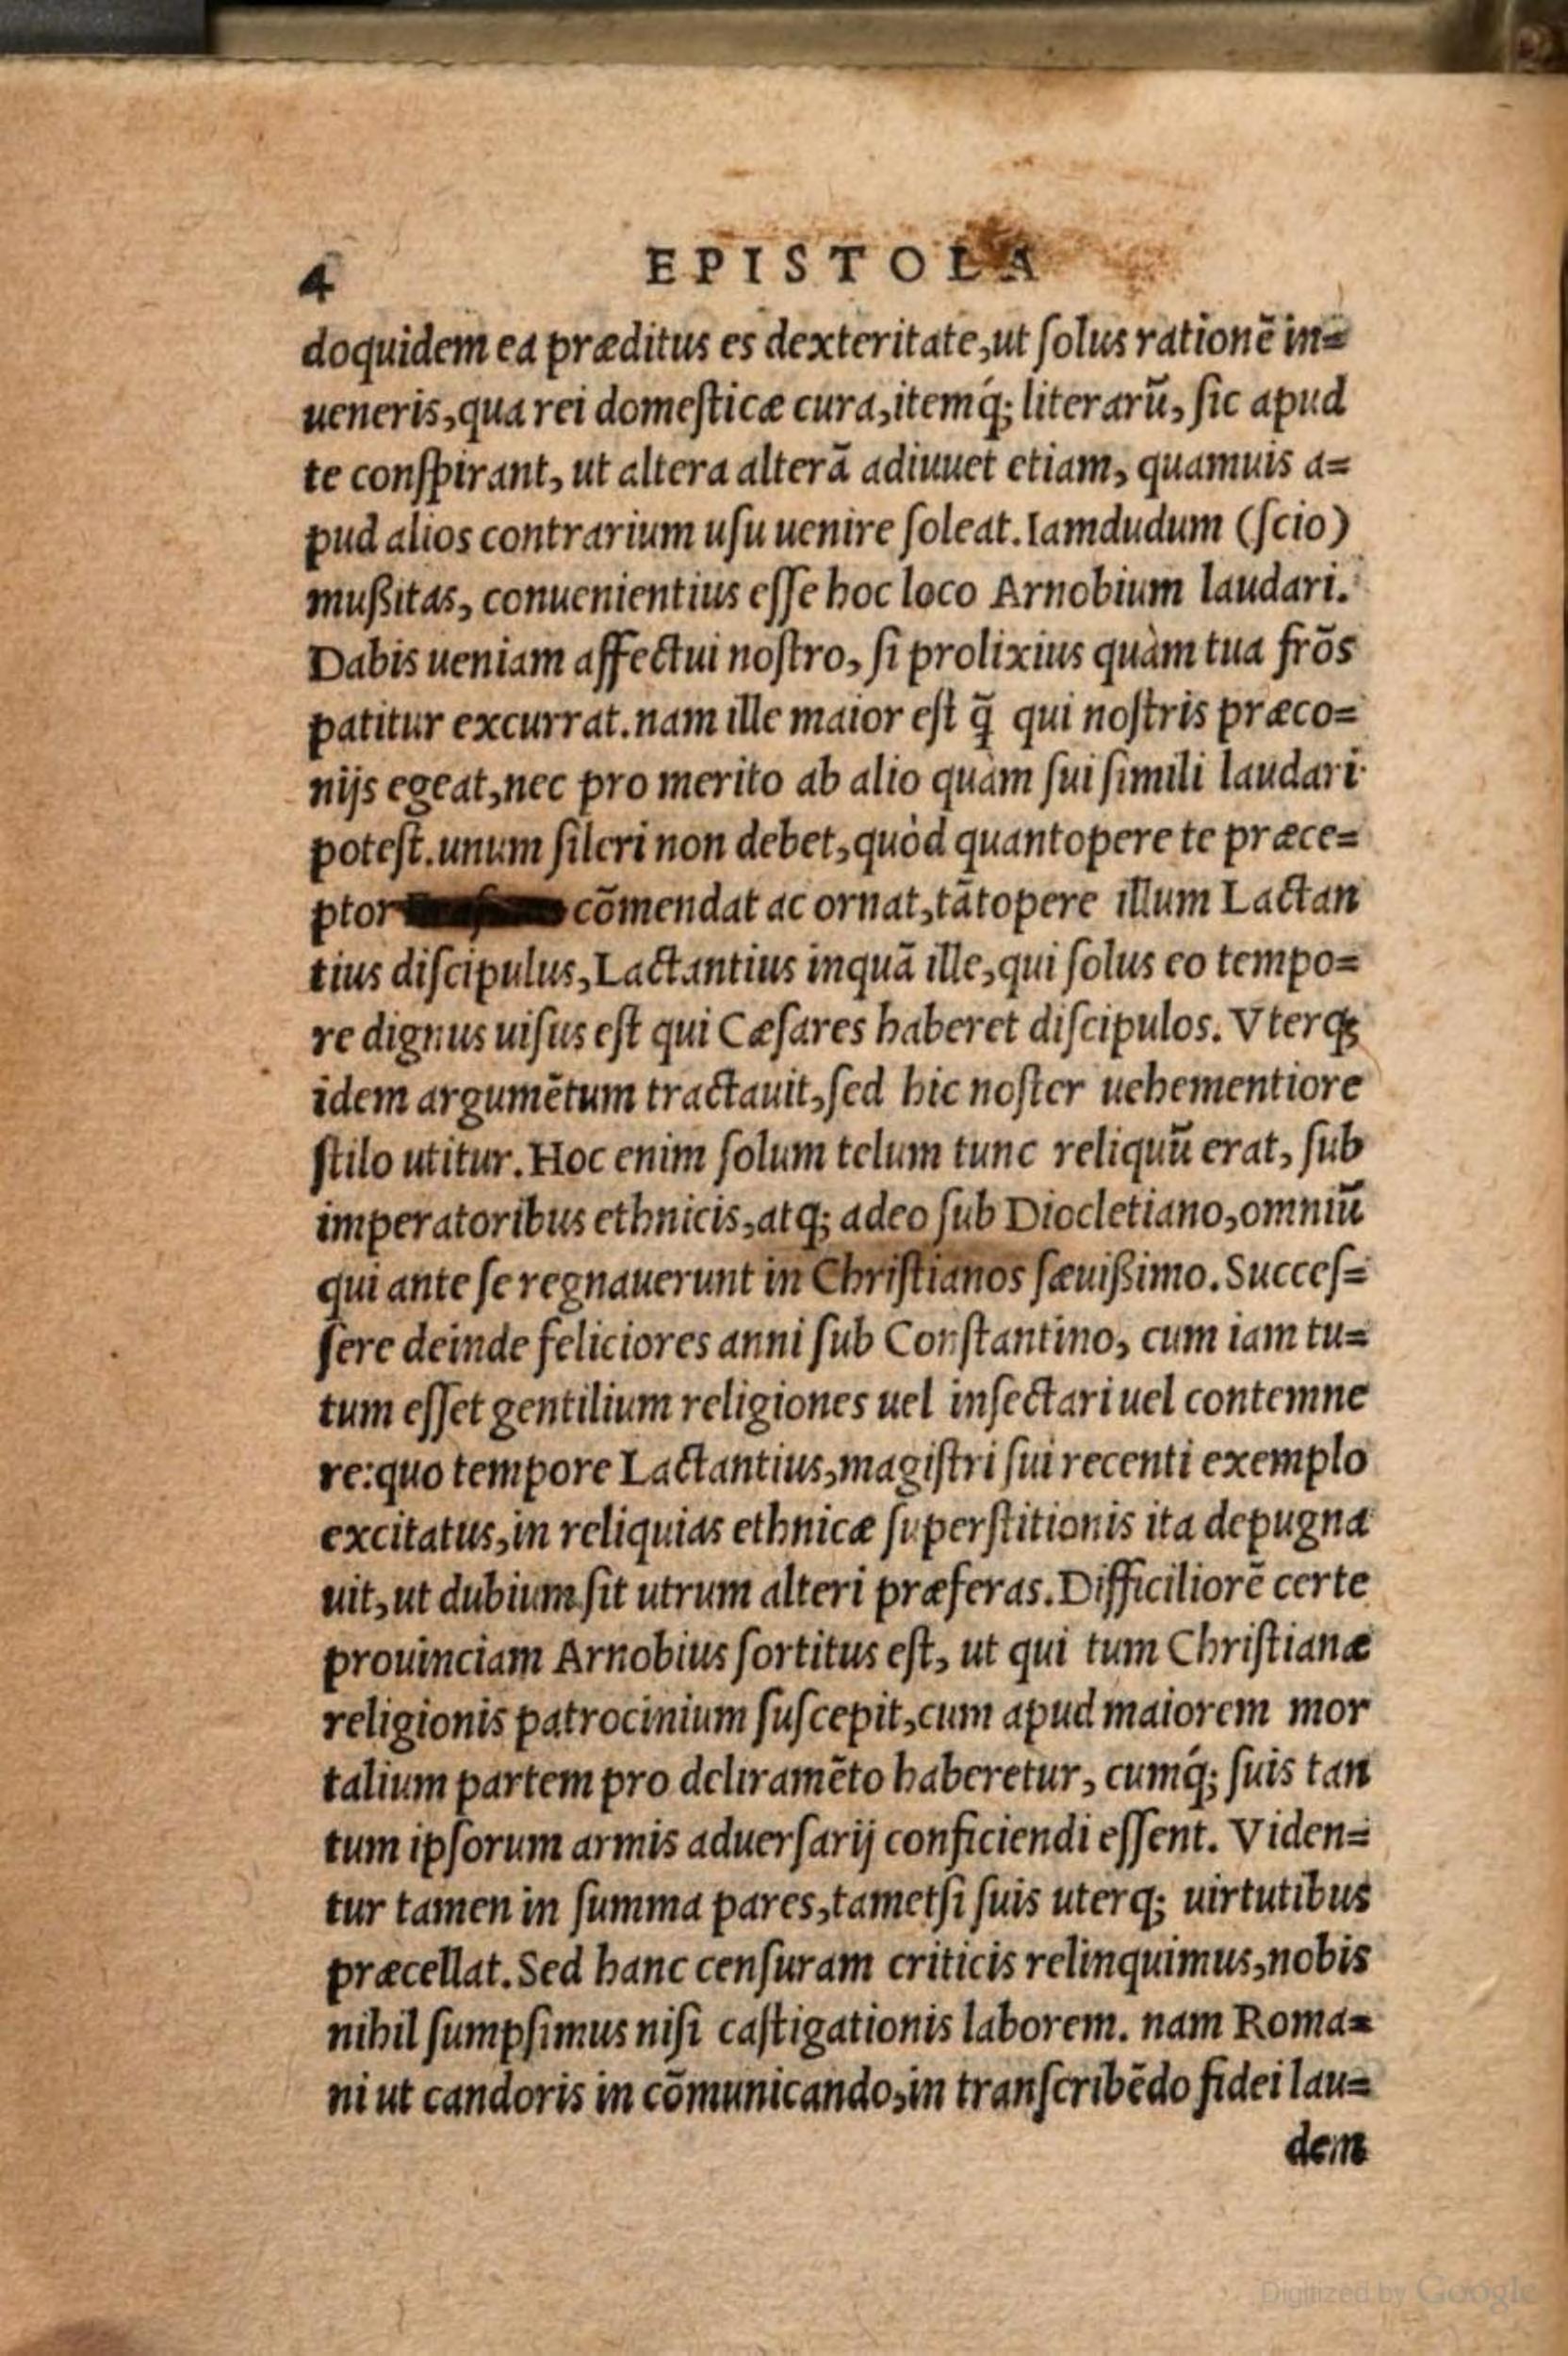 4 EPISTOLA
doquidem ea præditus es dexteritate,ut ſolus rationē in=
ueneris,qua rei domeſticæ cura,itemq́; literarū, ſic apud
te conſpirant, ut altera alterā adiuuet etiam, quamuis a=
pud alios contrarium uſu uenire ſoleat. Iamdudum (ſcio)
mußitas, conuenientius eſſe hoc loco Arnobium laudari.
Dabis ueniam affectui noſtro, ſi prolixius quàm tua frōs
patitur excurrat. nam ille maior eſt q̃ qui noſtris præco=
nijs egeat,nec pro merito ab alio quàm ſui ſimili laudari
poteſt. unum ſileri non debet,quòd quantopere te præce=
ptor cōmendat ac ornat,tātopere illum Lactan
tius diſcipulus,Lactantius inquā ille,qui ſolus eo tempo=
re dignus uiſus eſt qui Cæſares haberet diſcipulos. Vterq;
idem argumētum tractauit,ſed hic noſter uehementiore
ſtilo utitur. Hoc enim ſolum telum tunc reliquū erat, ſub
imperatoribus ethnicis,atq; adeo ſub Diocletiano,omniū
qui ante ſe regnauerunt in Chriſtianos ſæuißimo. Succeſ=
ſere deinde feliciores anni ſub Conſtantino, cum iam tu=
tum eſſet gentilium religiones uel inſectari uel contemne
re:quo tempore Lactantius,magiſtri ſui recenti exemplo
excitatus,in reliquias ethnicæ ſuperſtitionis ita depugna
uit,ut dubium ſit utrum alteri præferas. Difficiliorē certe
prouinciam Arnobius ſortitus eſt, ut qui tum Chriſtianæ
religionis patrocinium ſuſcepit,cum apud maiorem mor
talium partem pro deliramēto haberetur, cumq́; ſuis tan
tum ipſorum armis aduerſarij conficiendi eſſent. Viden=
tur tamen in ſumma pares,tametſi ſuis uterq; uirtutibus
præcellat. Sed hanc cenſuram criticis relinquimus,nobis
nihil ſumpſimus niſi caſtigationis laborem. nam Roma=
ni ut candoris in cōmunicando,in tranſcribēdo fidei lau=
dem
Digitized by Google